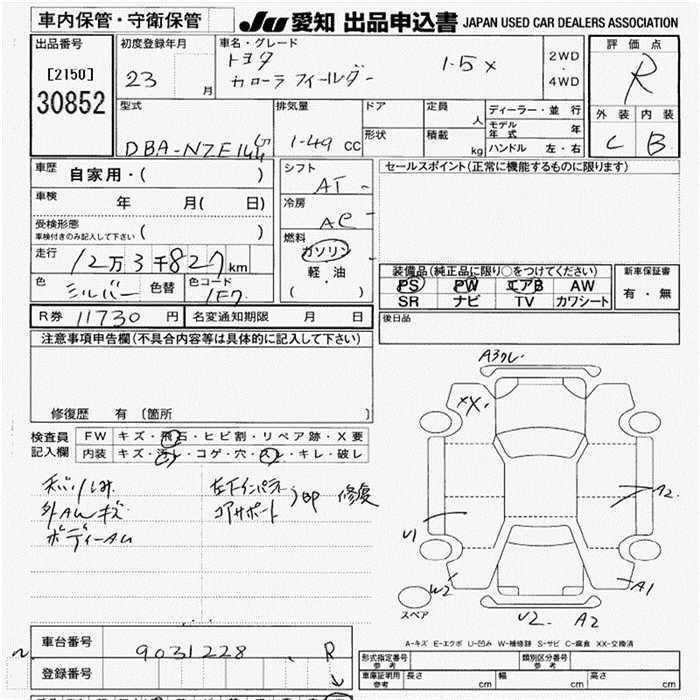 車内保管・守衛保管
JU 愛知 出品申込書 JAPAN USED CAR DEALERS ASSOCIATION
出品番号
[2150]
30852
初度登録年月
23 月
車名・グレード
トヨタ
カローラフィールダー
1.5 X
2WD
・
4WD
評価点
R
外装 内装
C B
型式
DBA-NZE144G
排気量
1.49 CC
ドア
形状
定員 人
積載 kg
ディーラー・並行
モデル年式 年
ハンドル 左・右
車歴
自家用・( )
車検
年 月( 日)
受検形態
車検付きのみ記入して下さい ( )
走行
12万3千827km
色
シルバー
色替
色コード
1F7
シフト
AT
冷房
AC
燃料
ガソリン
・
軽油
( )
セールスポイント(正常に機能するものに限ります)
装備品(純正品に限り○をつけてください)
PS PW エアB AW
SR ナビ TV カワシート
新車保証書
有・無
R券 11730 円
名変通知期限 月 日
後日品
注意事項申告欄(不具合内容等は具体的に記入して下さい)
修復歴 有 [箇所 ]
検査員
記入欄
FW キズ・飛石・ヒビ割・リペア跡・X要
内装 キズ・汚レ・コゲ・穴・スレ・キレ・破レ
外AWキズ
ボディーAW
左下インパネ
コアサポート
修復
A3クレ
XX
A2
U1
W2
A1
スペア
U2
A2
A-キズ E-エクボ U-凹み W-補修跡 S-サビ C-腐食 XX-交換済
車台番号
9031228
R
登録番号
形式指定番号
参考
類別区分番号
参考
車庫証明用
参考
長さ cm
幅 cm
高さ cm